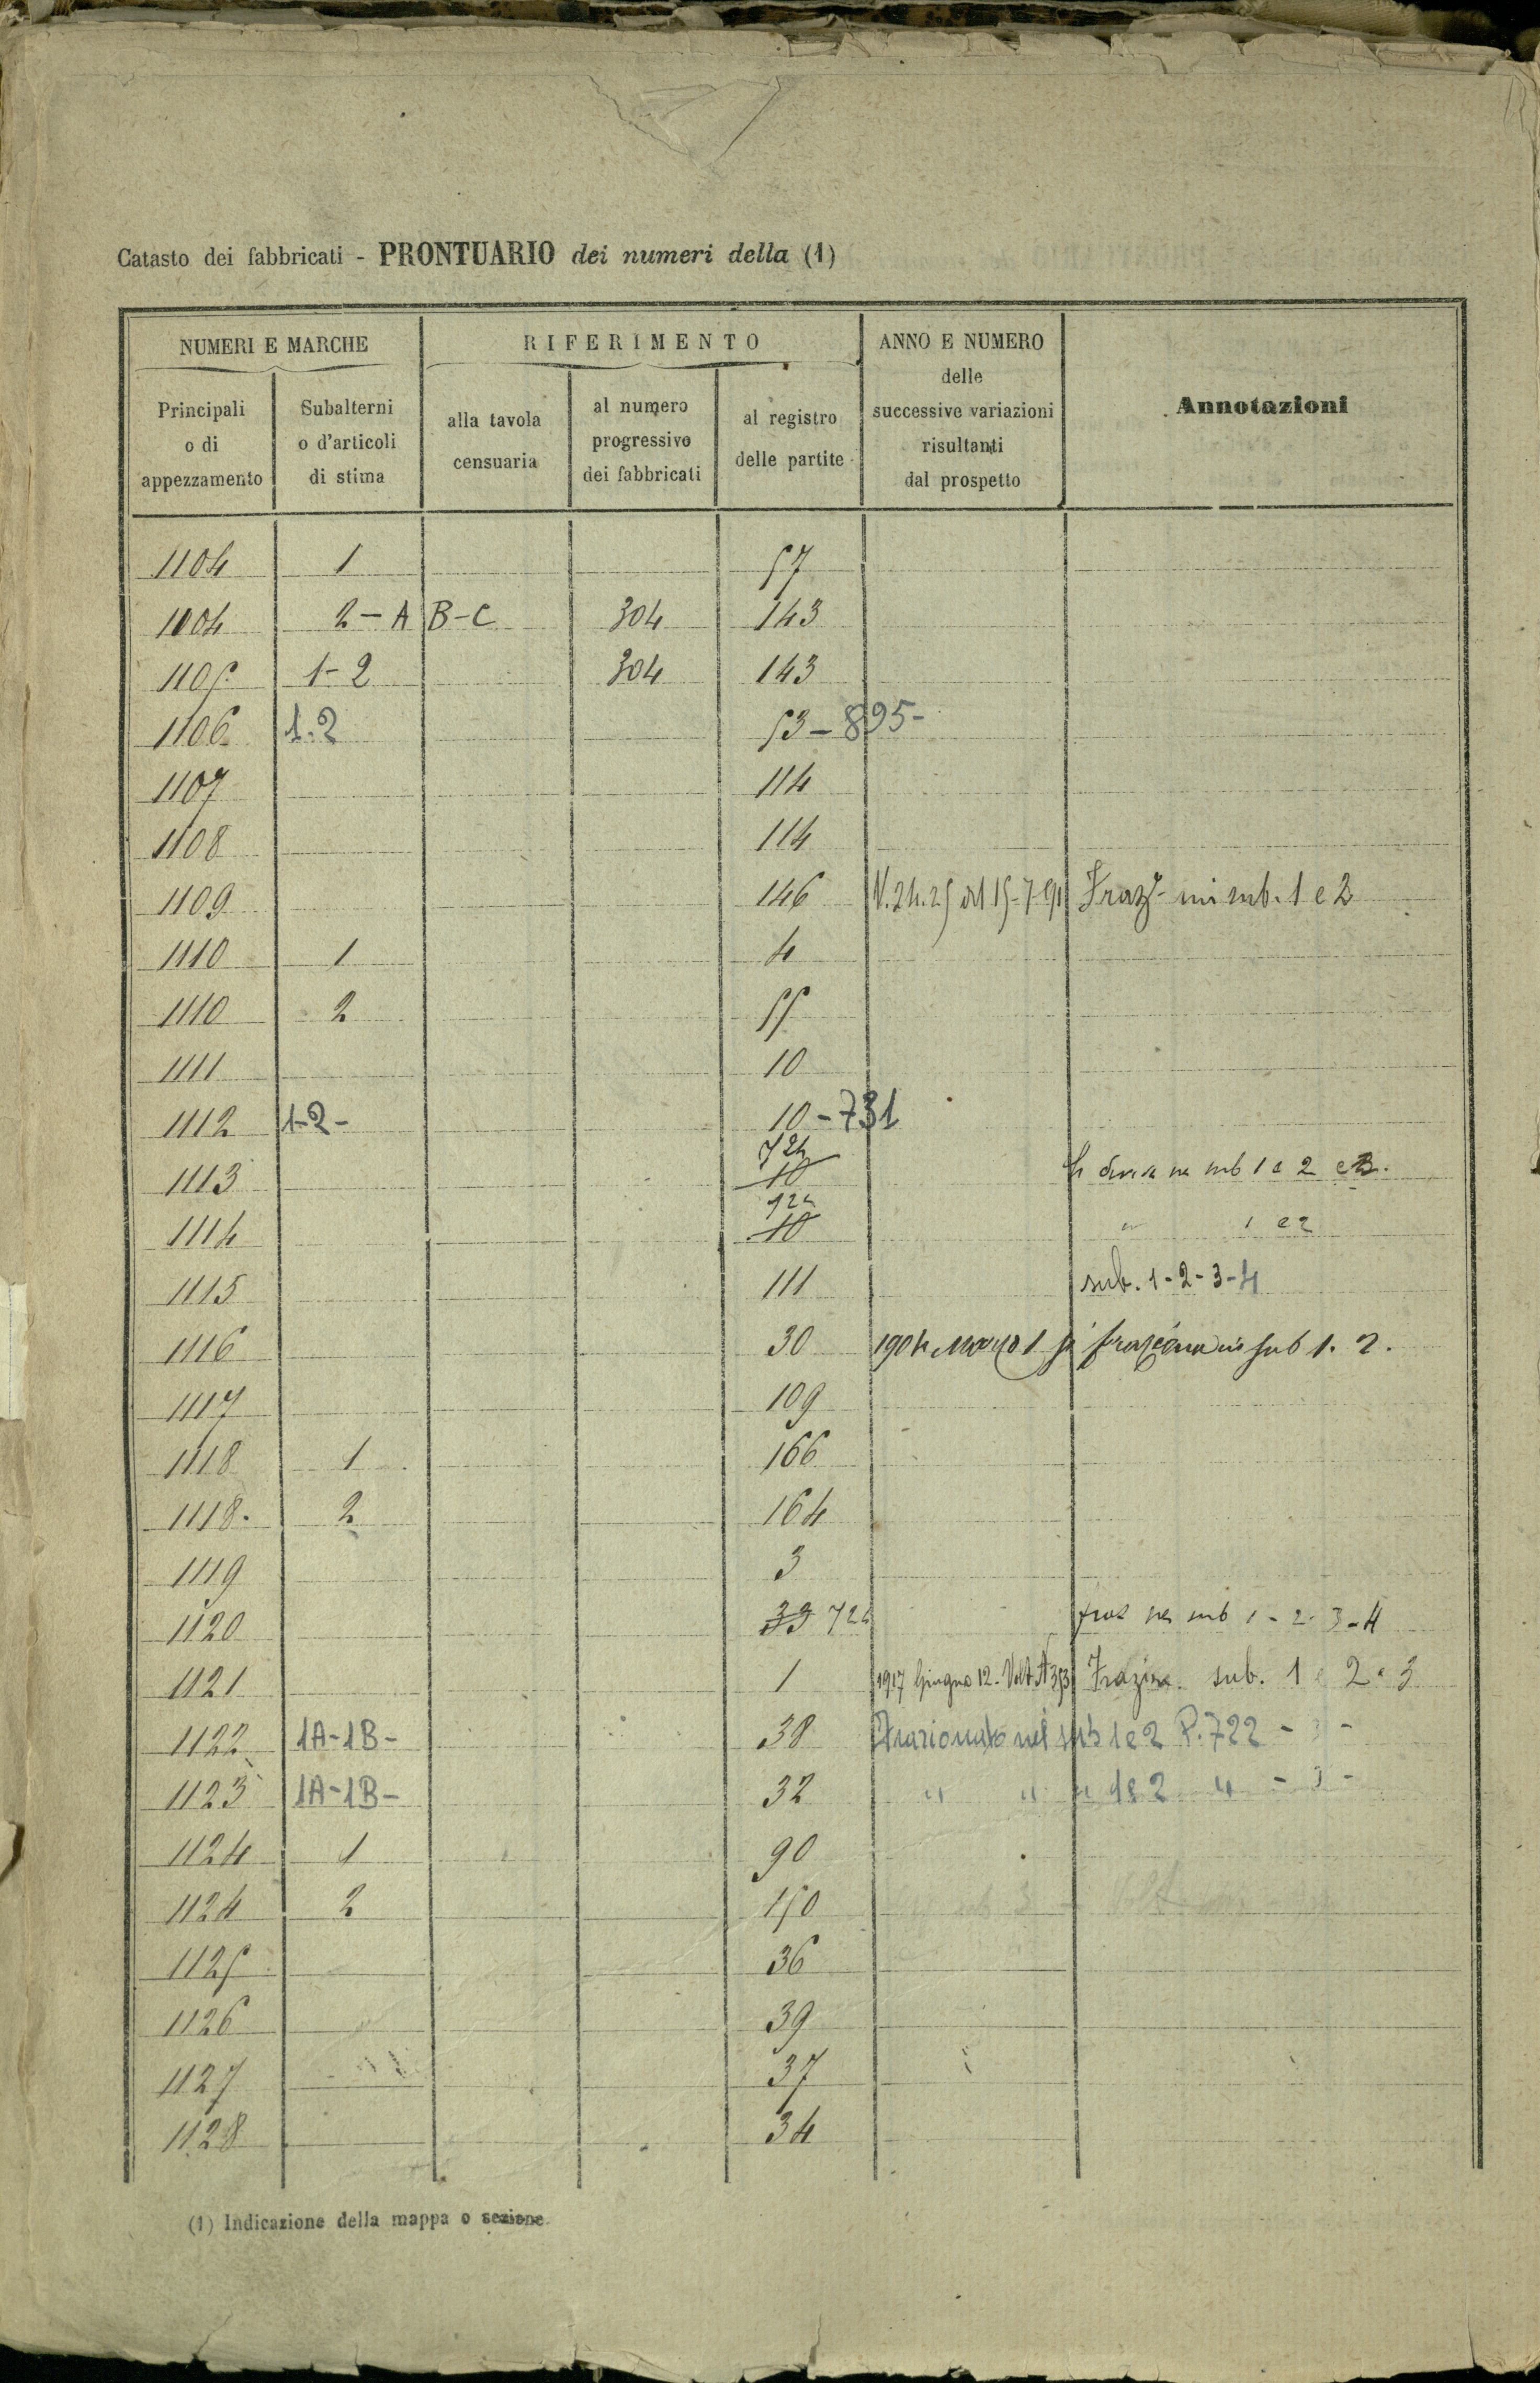 Catasto dei fabbricati - PRONTUARIO dei numeri della (1)
NUMERI E MARCHE
RIFERIMENTO
ANNO E NUMERO
delle
successive variazioni
risultanti
dal prospetto
Annotazioni
Principali
o di
appezzamento
Subalterni
o d'articoli
di stima
alla tavola
censuaria
al numero
progressivo
dei fabbricati
al registro
delle partite
1104 1 57
1104 2-A B-C 304 143
1105 1-2 304 143
1106 1.2 53-895-
1107 114
1108 114
1109 146 Fraz. sub. 1 e 2
1110 1 4
1110 2 55
1111 10
1112 1-2- 10-731
724
1113 10 sub 1 e 2 e 3.
724
1114 10 " 1 e 2
1115 111 sub. 1-2-3-4
1116 30 1904 Marzo 1 si fraziona in sub 1. 2.
1117 109
1118 1 166
1118. 2 164
1119 3
1120 33 724 fraz sub 1-2-3-4
1121 1 1917 Giugno 12. Fraz. sub. 1 e 2 e 3
1122 1A-1B- 38 Frazionato nel sub 1 e 2 P. 722 - 3 -
1123 1A-1B- 32 " " " 1 e 2 " - 3 -
1124 1 90
1124 2 150
1125 36
1126 39
1127 37
1128 34
(1) Indicazione della mappa o sezione.